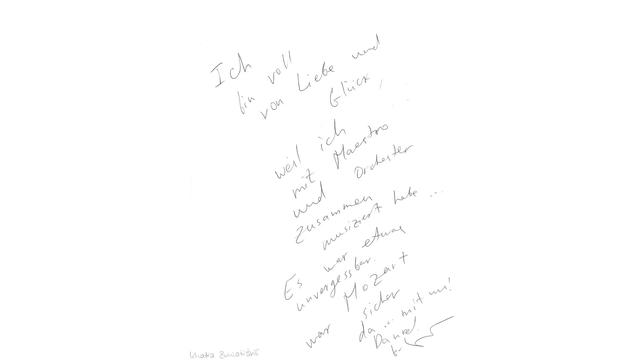 Ich
bin voll
von Liebe und
Glück,
weil ich
mit Maestro
und Orchester
zusammen
musiziert habe ...
Es war etwas
unvergessbar.
Mozart
war sicher
da ... mit uns!